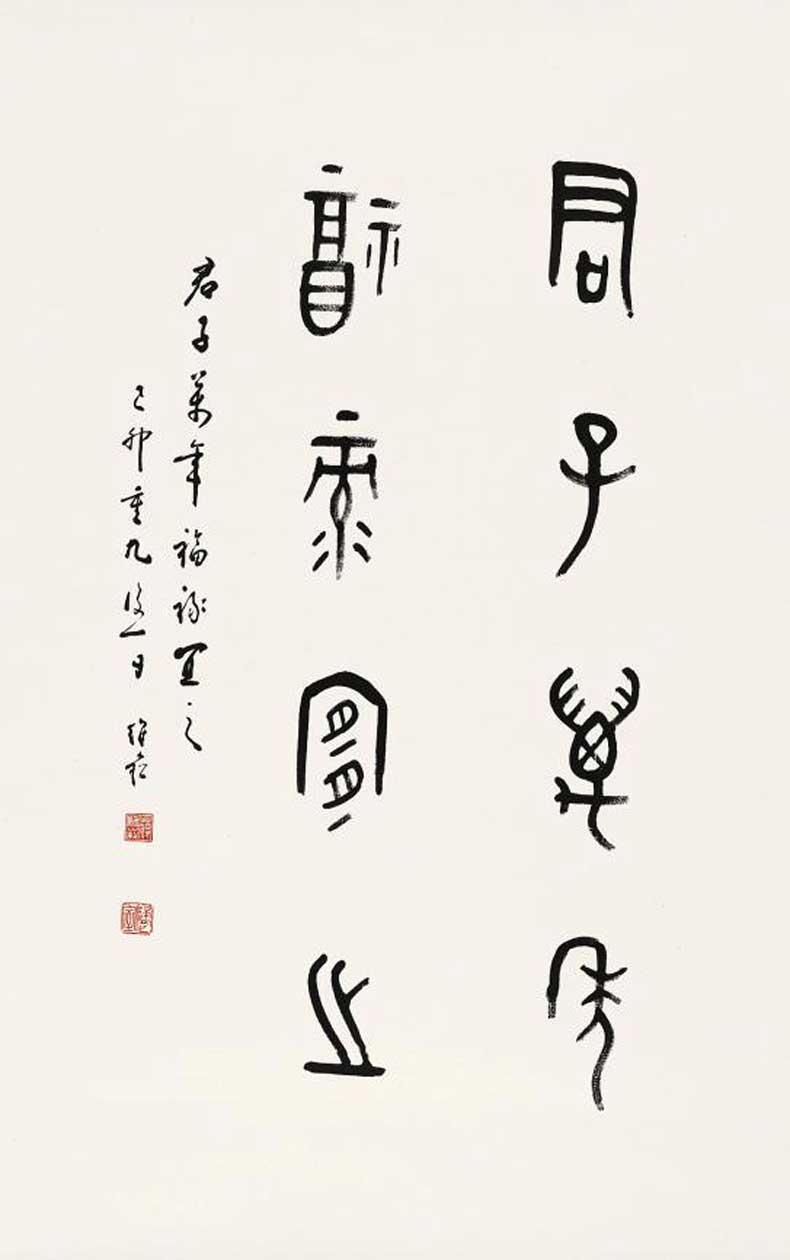 君子萬年
福祿宜之
君子萬年福祿宜之
己卯重九後一日 維崧